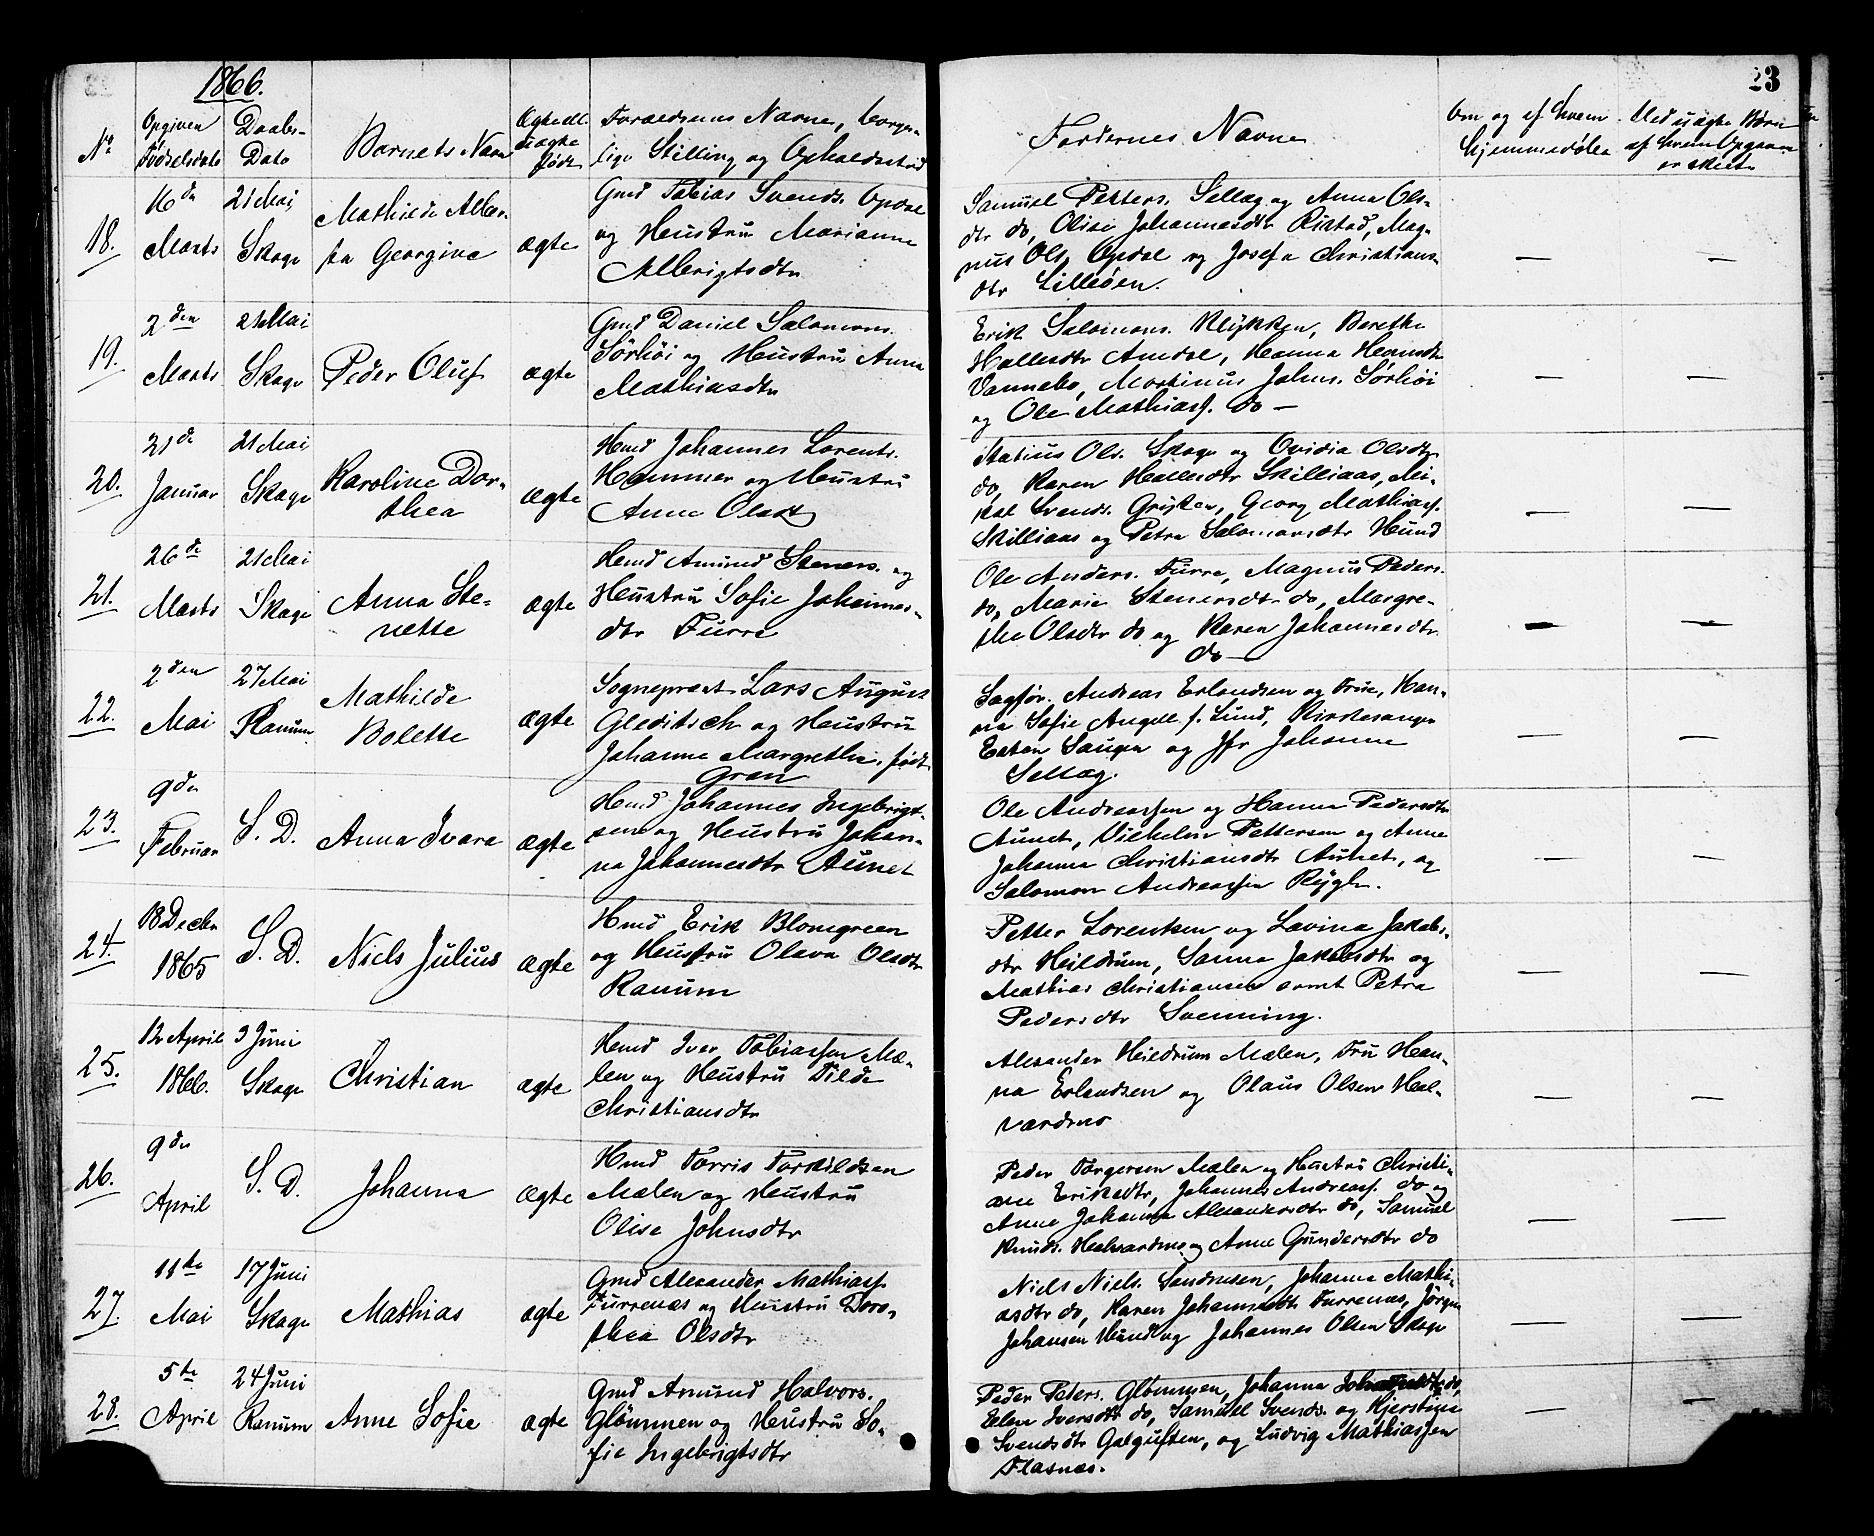 1866.
23
No
Opgiven Fødselsdato
Daabs-Dato
Barnets Navn
Ægte ell. uægte født
Forældrenes Navne, borger-
lige Stilling og Opholdssted
Faddernes Navne
Om og af hvem
hjemmedøbt
Ved uægte Børn
af hvem Opgaven
er skeet
18.
16de Marts
21 Mai, Skage
Mathilde Alber-
ta Georgine
ægte
Gmd Tobias Svends. Opdal
og Hustru Marianna
Albrigtsdtr
Samuel Petters. Sellæg og Anna Ols-
dtr do, Olise Johannesdtr Ristad, Mag-
nus Ols. Opdal og Josefa Christians-
dtr Lilleøen.
—
—
19.
2den Marts
21 Mai Skage
Peder Oluf
ægte
Gmd Daniel Salomons.
Sørhøi og Hustru Anna
Mathiasdtr
Erik Salomons. Klykken, Berethe
Hallesdtr Amdal, Hanna Hansdtr
Vannebo, Martinus Johns. Sørhøi
og Ole Mathiass. do —
—
—
20.
21de Januar
21 Mai, Skage
Karoline Dor-
thea
ægte
Hmd Johannes Lorents.
Hammer og Hustru
Anne Olsdtr
Statius Ols. Skage og Ovidia Olsdtr
do, Karen Hallesdtr Skilliaas, Mi-
kal Svends. Georg Mathiass.
Skilliaas og Petra Salomonsdtr Hund
—
—
21.
26de Marts
21 Mai Skage
Anna Ste-
nette
ægte
Hmd Amund Steners. og
Hustru Sofie Johannes-
dtr Furre
Ole Anders. Furre, Magnus Peders.
do, Marie Stenersdtr do, Margre-
the Olsdtr do og Karen Johannesdtr
do —
—
—
22.
2den Mai
27 Mai Ranum
Mathilde
Bolette
ægte
Sogneprest Lars August
Gleditsch og Hustru
Johanne Margrethe, født
Gran
Sagfør. Andreas Erlandsen og Frue, Han-
na Sofie Angell f. Lund, Kirkesanger
Esten Saugen og Jfr Johanne
Sellæg.
—
—
23.
9de Februar
S. D.
Anna Ivara
ægte
Hmd Johannes Ingebrigt-
sen og Hustru Johan-
na Johannesdtr Aunet
Ole Andreassen og Hanna Pedersdtr
Aunet, Vilhelm Pettersen og Anne
Johanna Christiansdtr Aunet, og
Salomon Andreassen Rygh.
—
—
24.
18 Decbr 1865
S. D.
Niels Julius
ægte
Hmd Erik Blomgreen
og Hustru Olava Olsdtr
Ranum
Petter Lorentsen og Lavina Jakobs-
dtr Heildrum, Sanna Jakobsdtr og
Mathias Christiansen samt Petra
Pedersdtr Svenning.
—
—
25.
12 April 1866.
3 Juni Skage
Christian
ægte
Hmd Iver Tobiassen Mæ-
len og Hustru Tilda
Christiansdtr
Alexander Heildrum Mælen, Fru Han-
na Erlandsen og Olaus Olsen Hal-
vardmo
—
—
26.
9de April
S. D.
Johanna
ægte
Hmd Torris Torkildsen
Mælen og Hustru
Olise Johnsdtr
Peder Torgersen Mælen og Hustru Christi-
ane Eriksdtr, Johannes Andreass. do og
Anne Johanna Alexandersdtr do, Samuel
Knuds. Halvardmo og Anne Gundersdtr do
—
—
27.
11te Mai
17 Juni Skage
Mathias
ægte
Gmd Alexander Mathiass.
Furrenæs og Hustru Doro-
thea Olsdtr
Niels Niels. Sandmoen, Johanna Mathi-
asdtr do, Karen Johannesdtr Furrenæs, Jørgen
Johansen Hund og Johannes Olsen Skage
—
—
28.
5te April
24 Juni Ranum
Anne Sofie
ægte
Gmd Amund Halvors.
Glømmen og Hustru So-
fie Ingebrigtsdtr
Peder Peders. Glømmen, Johanna do,
Elen Iversdtr do, Samuel Svends. og Kjerstine
Svendsdtr Galguften, og Ludvig Mathiassen
Flasnæs.
—
—